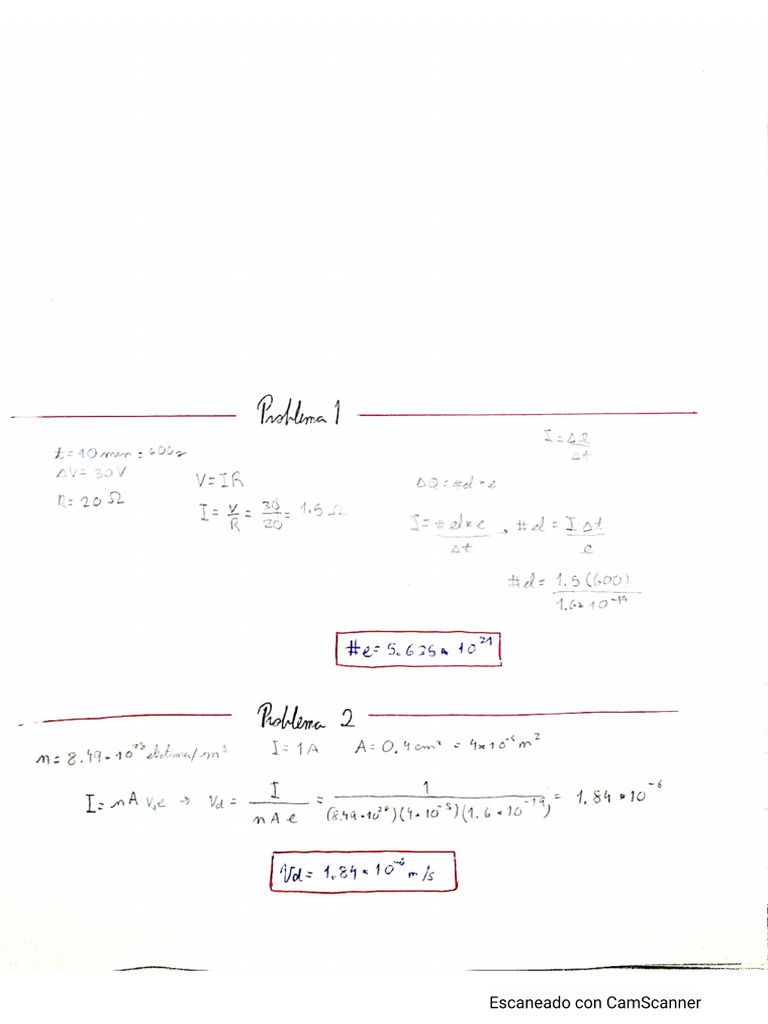 Problema 1
t = 10 min = 600s
ΔV = 30V
R = 20 Ω
V = IR
I = V/R = 30/20 = 1.5 Ω
I = ΔQ/Δt
ΔQ = #el * e
I = #el * e/Δt → #el = I Δt/e
#el = 1.5 (600)/1.6 * 10⁻¹⁹
#e = 5.625 * 10²¹
Problema 2
n = 8.49 * 10²⁸ /m³
I = 1A
A = 0.4 cm² = 4 * 10⁻⁵ m²
I = nA Vd e → Vd = I/nAe = 1/(8.49 * 10²⁸)(4 * 10⁻⁵)(1.6 * 10⁻¹⁹) = 1.84 * 10⁻⁶
Vd = 1.84 * 10⁻⁶ m/s
Escaneado con CamScanner